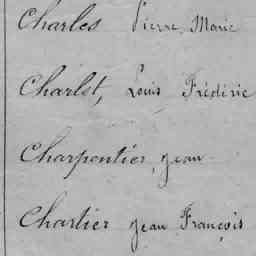 Charles Pierre Marie
Charlet, Louis Frédéric
Charpentier, Jean
Chartier Jean François